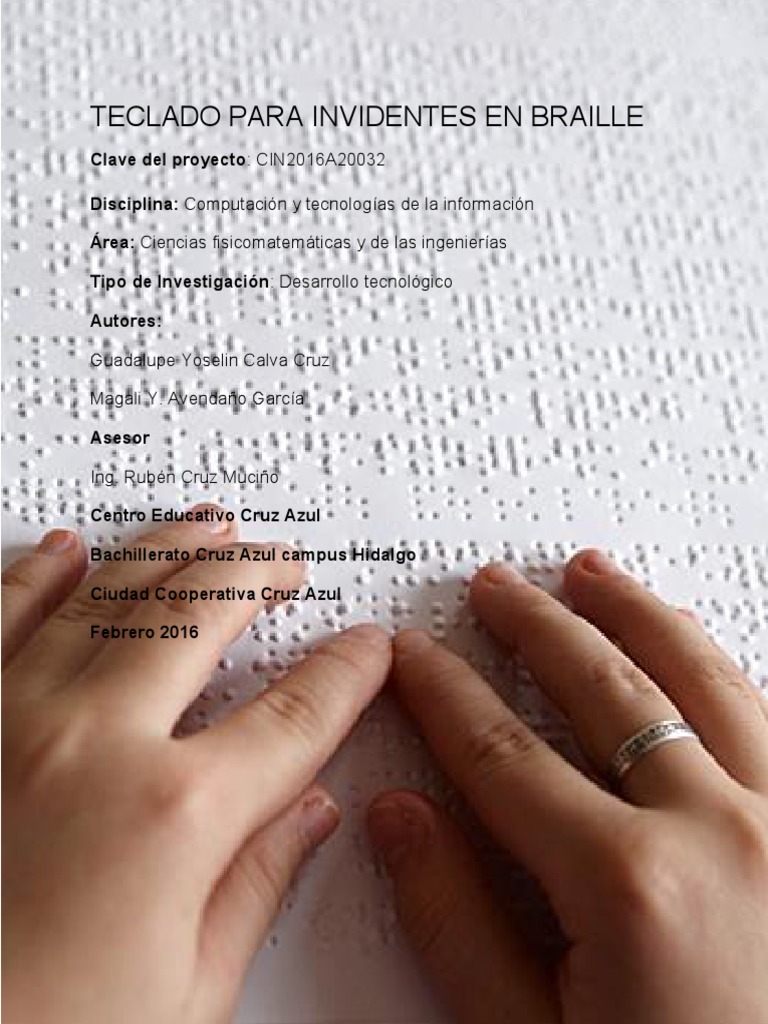 TECLADO PARA INVIDENTES EN BRAILLE
Clave del proyecto: CIN2016A20032
Disciplina: Computación y tecnologías de la información
Área: Ciencias fisicomatemáticas y de las ingenierías
Tipo de Investigación: Desarrollo tecnológico
Autores:
Guadalupe Yoselin Calva Cruz
Magali Y. Avendaño García
Asesor
Ing. Rubén Cruz Muciño
Centro Educativo Cruz Azul
Bachillerato Cruz Azul campus Hidalgo
Ciudad Cooperativa Cruz Azul
Febrero 2016